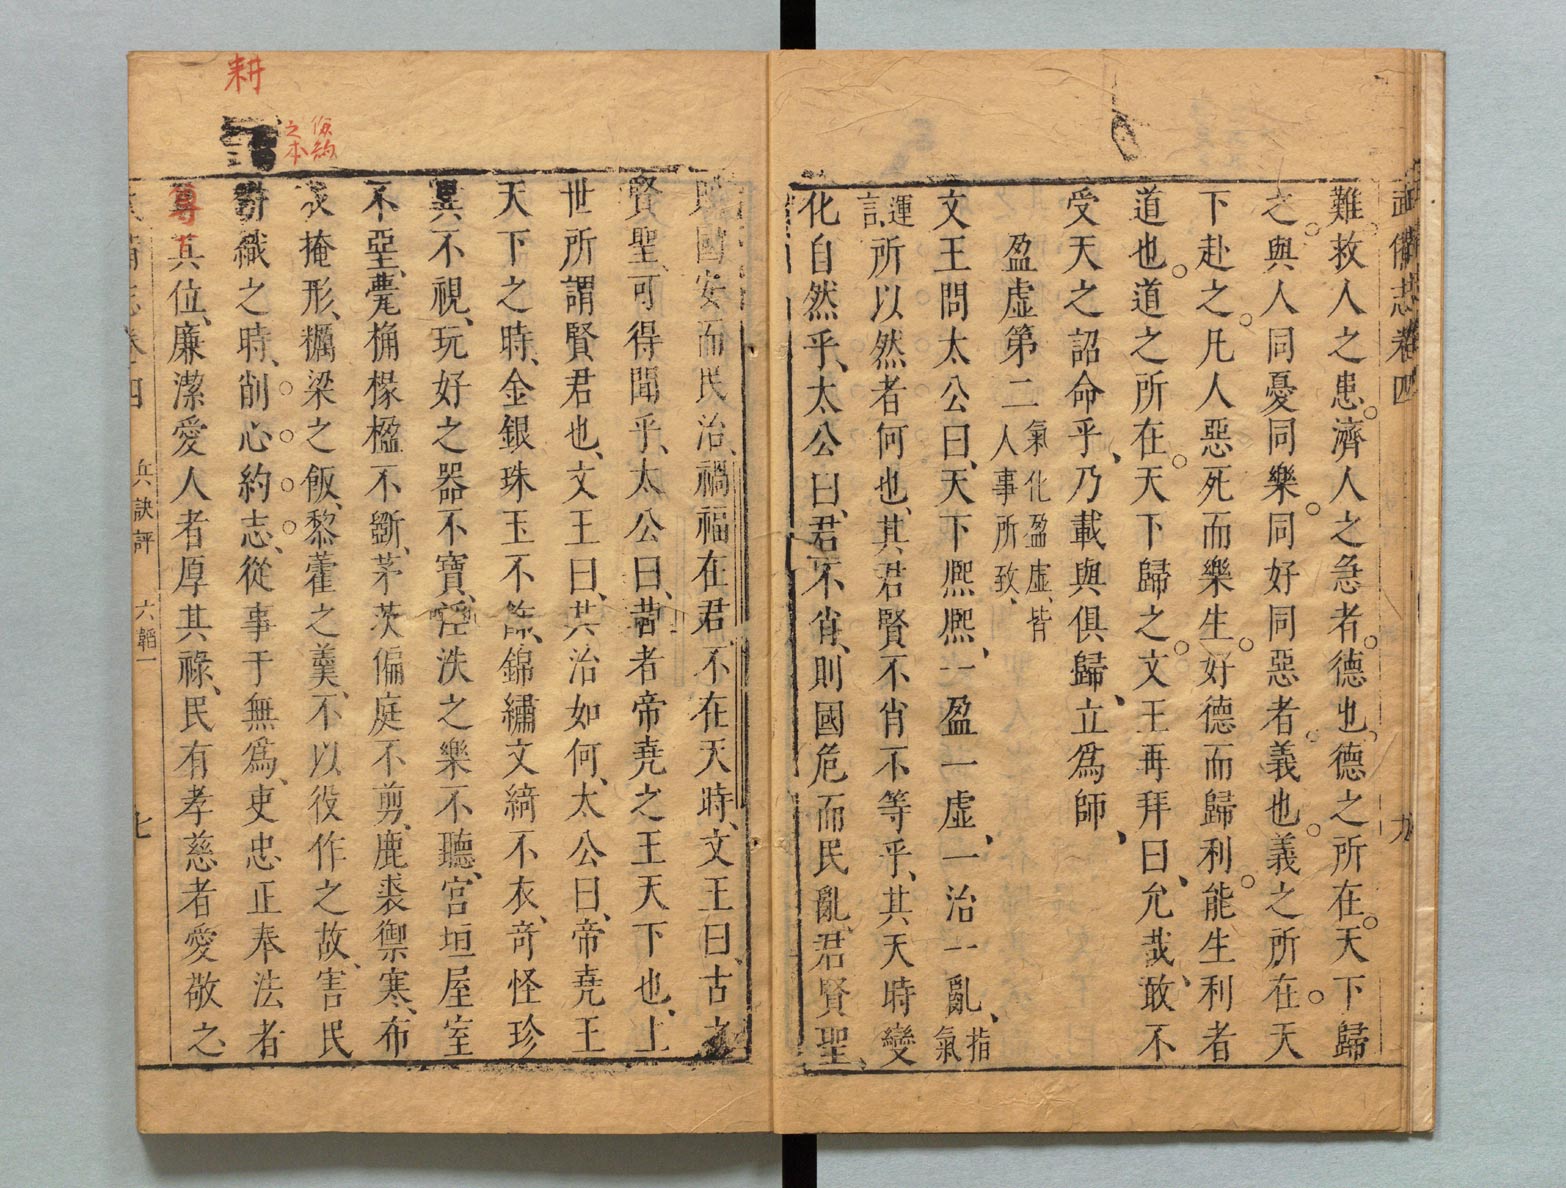 武備志卷四
九
難救人之患濟人之急者德也德之所在天下歸
之與人同憂同樂同好同惡者義也義之所在天
下赴之凡人惡死而樂生好德而歸利能生利者
道也道之所在天下歸之文王再拜曰允哉敢不
受天之詔命乎乃載與俱歸立爲師
盈虛第二氣化盈虛皆
人事所致
文王問太公曰天下熈熈一盈一虛一治一亂指
氣
運
言所以然者何也其君賢不肖不等乎其天時變
化自然乎太公曰君不肖則國危而民亂君賢聖
則國安而民治禍福在君不在天時文王曰古之
賢聖可得聞乎太公曰昔者帝堯之王天下也上
世所謂賢君也文王曰其治如何太公曰帝堯王
天下之時金銀珠玉不餙錦繡文綺不衣竒怪珍
異不視玩好之器不寶淫泆之樂不聽宮垣屋室
不堊甍桷椽楹不斵茅茨偏庭不剪鹿裘禦寒布
衣掩形糲粱之飯藜藿之羹不以役作之故害民
之本
儉約
耕織之時削心約志從事于無爲吏忠正奉法者
耕
尊其位廉潔愛人者厚其祿民有孝慈者愛敬之
卷四
兵訣評
六韜一
七